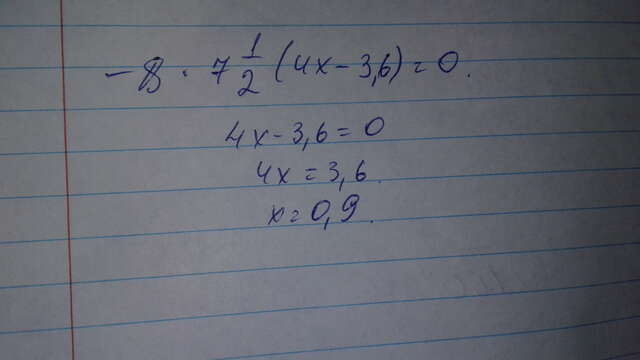 -8 · 7 1/2 (4x - 3,6) = 0.
4x - 3,6 = 0
4x = 3,6.
x = 0,9.